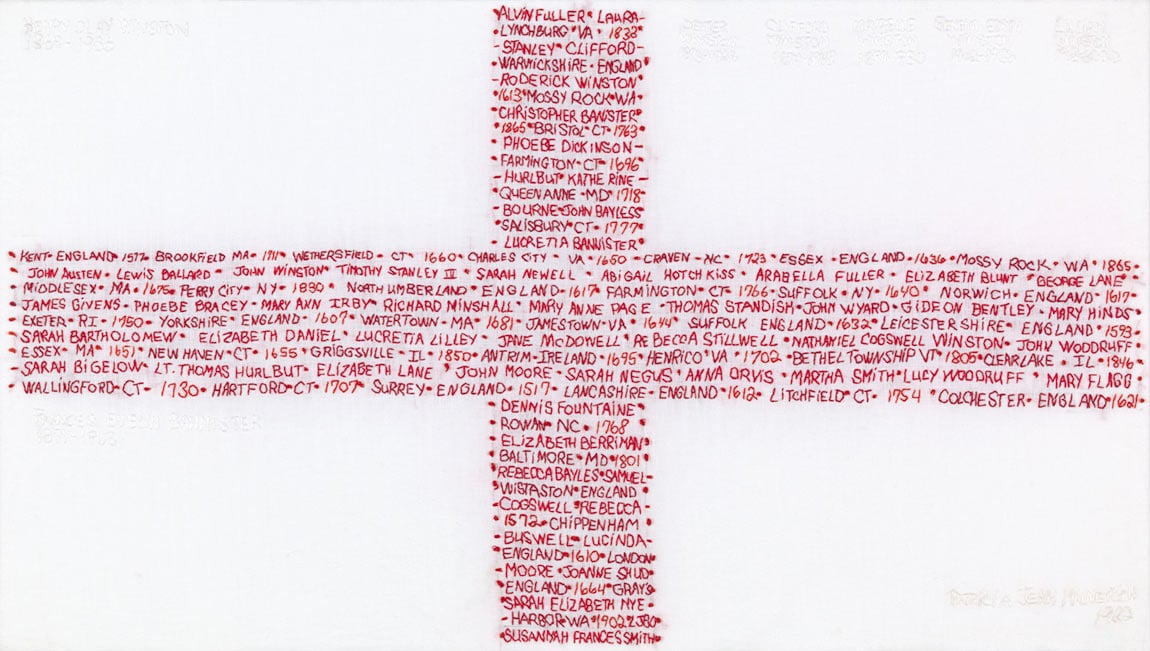 ALVIN FULLER • LAURA-
•LYNCHBURG•VA • 1838•
-STANLEY•CLIFFORD-
•WARWICKSHIRE•ENGLAND•
-RODERICK WINSTON•
•1613•MOSSY ROCK•WA•
•CHRISTOPHER BANISTER•
•1865•BRISTOL•CT•1763•
•PHOEBE DICKINSON-
•FARMINGTON•CT•1696•
-HURLBUT•KATHERINE-
•QUEEN ANNE•MD•1718•
-BOURNE•JOHN BAYLESS
•SALISBURY•CT•1777•
-LUCRETIA BANNISTER•
•KENT•ENGLAND•1577• BROOKFIELD MA•1711• WETHERSFIELD • CT • 1660•CHARLES CITY • VA •1650 •CRAVEN•NC• 1723•ESSEX •ENGLAND•1636•MOSSY ROCK•WA•1865•
•JOHN AUSTEN•LEWIS BALLARD• JOHN WINSTON• TIMOTHY STANLEY II • SARAH NEWELL • ABIGAIL HOTCHKISS • ARABELLA FULLER • ELIZABETH BLUNT •GEORGE LANE•
MIDDLESEX•MA•1675•PERRY CITY•NY•1830• NORTHUMBERLAND•ENGLAND•1617•FARMINGTON•CT•1766•SUFFOLK•NY•1640• NORWICH•ENGLAND•1617•
•JAMES GIVENS•PHOEBE BRACEY•MARY ANN IRBY•RICHARD MINSHALL•MARY ANNE PAGE •THOMAS STANDISH•JOHN WYARD•GIDEON BENTLEY•MARY HINDS•
•EXETER•RI•1760•YORKSHIRE•ENGLAND•1607•WATERTOWN•MA•1681•JAMESTOWN•VA •1644• SUFFOLK ENGLAND•1632•LEICESTERSHIRE•ENGLAND•1593•
•SARAH BARTHOLOMEW• ELIZABETH DANIEL•LUCRETIA LILLEY• JANE MCDOWELL•REBECCA STILLWELL•NATHANIEL COGSWELL WINSTON•JOHN WOODRUFF•
•ESSEX•MA•1651•NEW HAVEN•CT•1655•GRIGGSVILLE•IL•1850•ANTRIM•IRELAND•1695•HENRICO•VA•1702•BETHEL TOWNSHIP VT•1805•CLEARLAKE•IL•1846•
•SARAH BIGELOW•LT. THOMAS HURLBUT•ELIZABETH LANE •JOHN MOORE•SARAH NEGUS•ANNA ORVIS•MARTHA SMITH•LUCY WOODRUFF • MARY FLAGG•
•WALLINGFORD•CT• 1730•HARTFORD•CT•1707• SURREY•ENGLAND•1517• LANCASHIRE•ENGLAND•1612• LITCHFIELD•CT• 1754 •COLCHESTER•ENGLAND•1621•
•DENNIS FOUNTAINE•
ROWAN•NC•1768
•ELIZABETH BERRIMAN•
•BALTIMORE•MD•1801•
•REBECCA BAYLES•SAMUEL-
•WISTASTON•ENGLAND •
-COGSWELL•REBECCA-
•1572•CHIPPENHAM •
-BUSWELL•LUCINDA-
•ENGLAND•1610•LONDON•
-MOORE•JOANNE SHUD-
•ENGLAND•1664•GRAYS
•SARAH ELIZABETH NYE•
-HARBOR•WA•1902•
•SUSANNAH FRANCES SMITH•